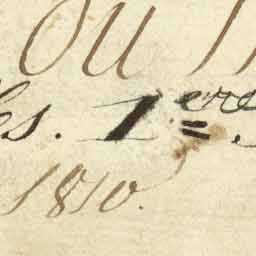 ou
es. 1ere
1810.